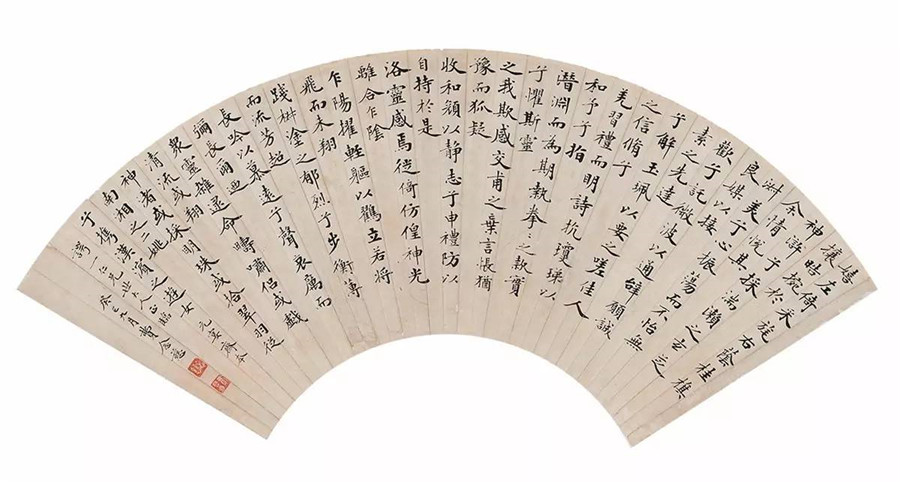 嬉左倚采旄右蔭桂旗
攘皓腕於
神滸兮採湍瀨之玄芝
余情悅其
淋美兮心振蕩而不怡無
良媒以接
歡兮託微波以通辭願誠
素之先達
兮解玉珮以要之嗟佳人
之信脩兮
羌習禮而明詩抗瓊珶以
和予兮指
潛淵而為期執拳〻之款實
兮懼斯靈
之我欺感交甫之棄言悵猶
豫而狐疑
收和顏以靜志兮申禮防以
自持於是
洛靈感焉徙倚仿偟神光
離合乍陰
乍陽擢輕軀以鶴立若將
飛而未翔
踐椒塗之郁烈兮步衡薄
而流芳超
長吟以慕遠兮聲哀厲而
彌長爾迺
衆靈雜遝命疇嘯侶或戲
清流或翔
神渚或採明珠或拾翠羽從
南湘之二姚
攜漢濱之遊女 元宴齋本
一仁兄世大人正臨
癸巳九月費念慈